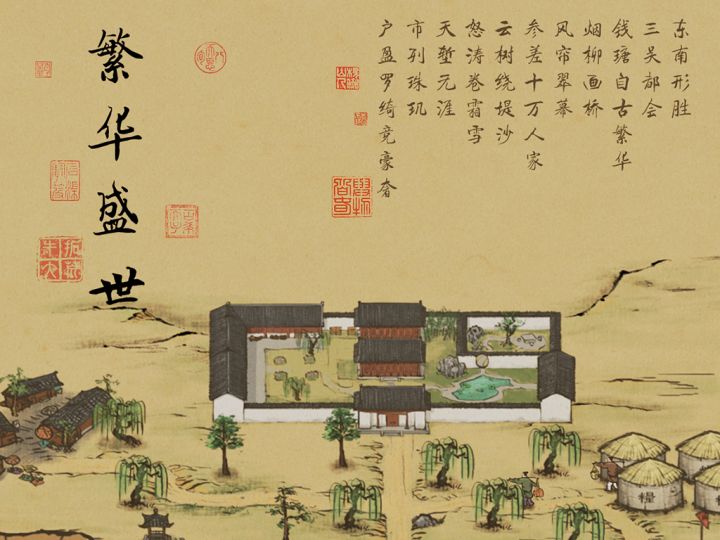 东南形胜
三吴都会
钱瑭自古繁华
烟柳画桥
风帘翠幕
参差十万人家
云树绕堤沙
怒涛卷霜雪
天堑元涯
市列珠玑
户盈罗绮竞豪奢
繁华盛世
糧